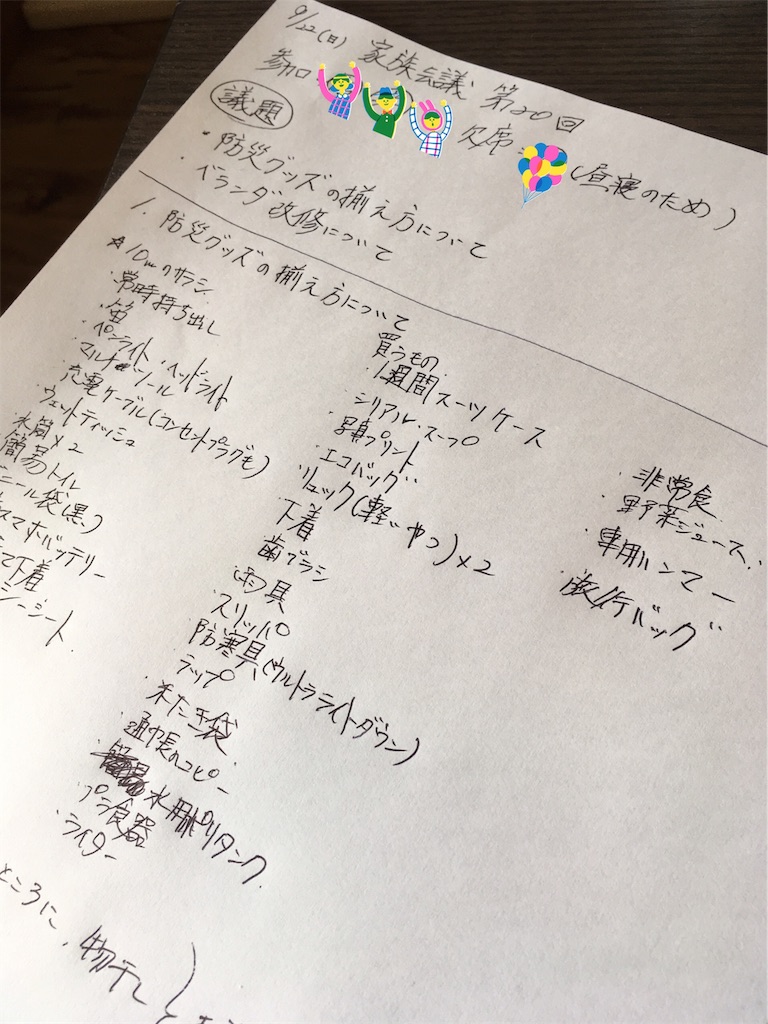 9/22(日) 家族会議 第20回
参加 欠席 (昼寝のため)
議題
・防災グッズの揃え方について
・ベランダ改修について
1. 防災グッズの揃え方について
☆10mのサラシ
・常時持ち出し
・笛
・ペンライト・ヘッドライト
・マルチツール
・充電ケーブル(コンセントプラグも)
・ウェットティッシュ
・水筒×2
・簡易トイレ
ニール袋(黒)
スマホバッテリー
下着
シーシート
買うもの
・1週間スーツケース
・シリアル・スープ
・写真プリント
・エコバッグ
・リュック(軽いやつ)×2
・下着
・歯ブラシ
・雨具
・スリッパ
・防寒具(ウルトラライトダウン)
・ラップ
・米たき袋
・通帳のコピー
・水用ポリタンク
・プラ食器
・ライター
・非常食
・野菜ジュース
・専用ハンマー
・旅行バッグ
ところに、物干し